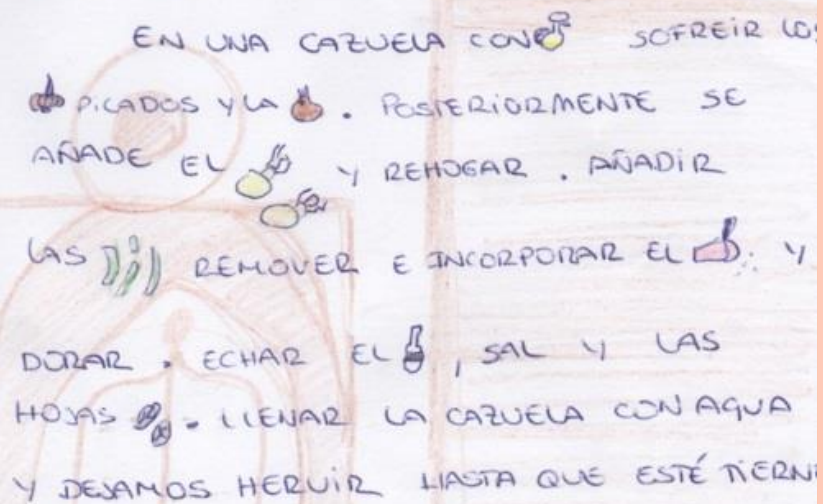 EN UNA CAZUELA CON SOFREIR LOS
PICADOS Y LA . POSTERIORMENTE SE
AÑADE EL Y REHOGAR . AÑADIR
LAS REMOVER E INCORPORAR EL . Y
DORAR . ECHAR EL , SAL Y LAS
HOJAS . LLENAR LA CAZUELA CON AGUA
Y DEJAMOS HERVIR HASTA QUE ESTÉ TIERN